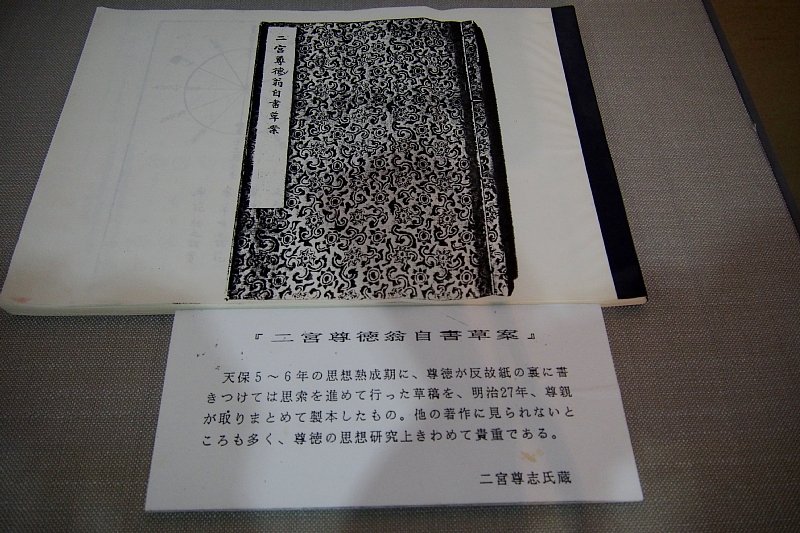 二宮尊徳翁自書草案
『二宮尊徳翁自書草案』
天保5～6年の思想熟成期に、尊徳が反故紙の裏に書
きつけては思索を進めて行った草稿を、明治27年、尊親
が取りまとめて製本したもの。他の著作に見られないと
ころも多く、尊徳の思想研究上きわめて貴重である。
二宮尊志氏蔵